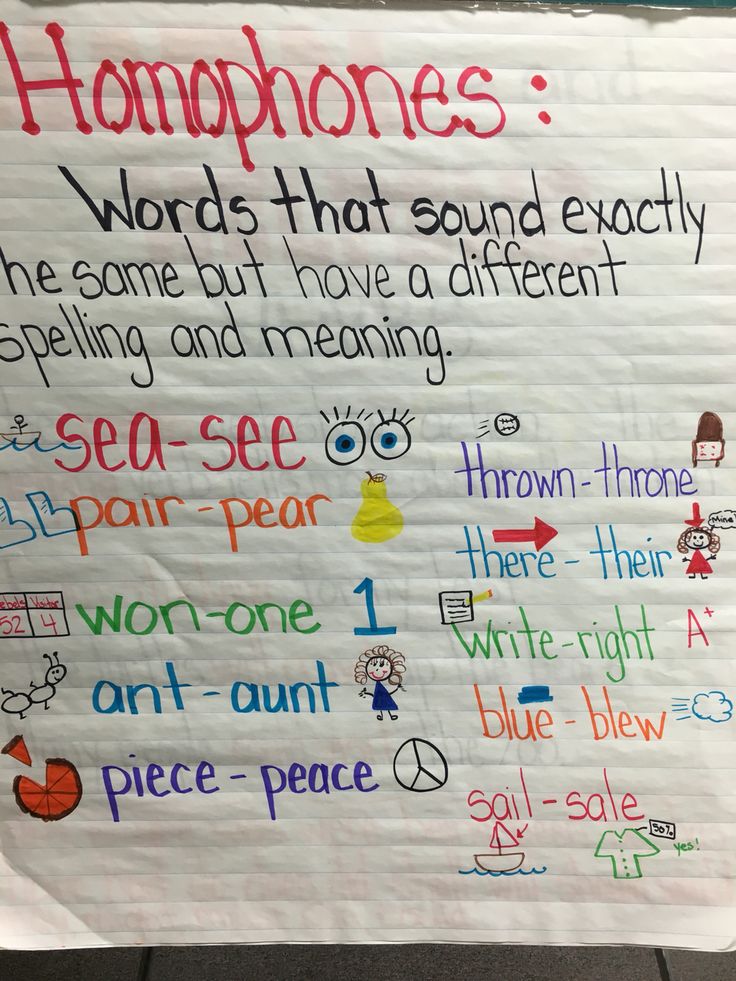 Homophones:
Words that sound exactly
he same but have a different
spelling and meaning.
sea-see
pair-pear
ebels Visitor
52 4
won-one 1
ant-aunt
piece-peace
thrown-throne
there-their
Mine
write-right A+
blue-blew
sail-sale
50%
yes!